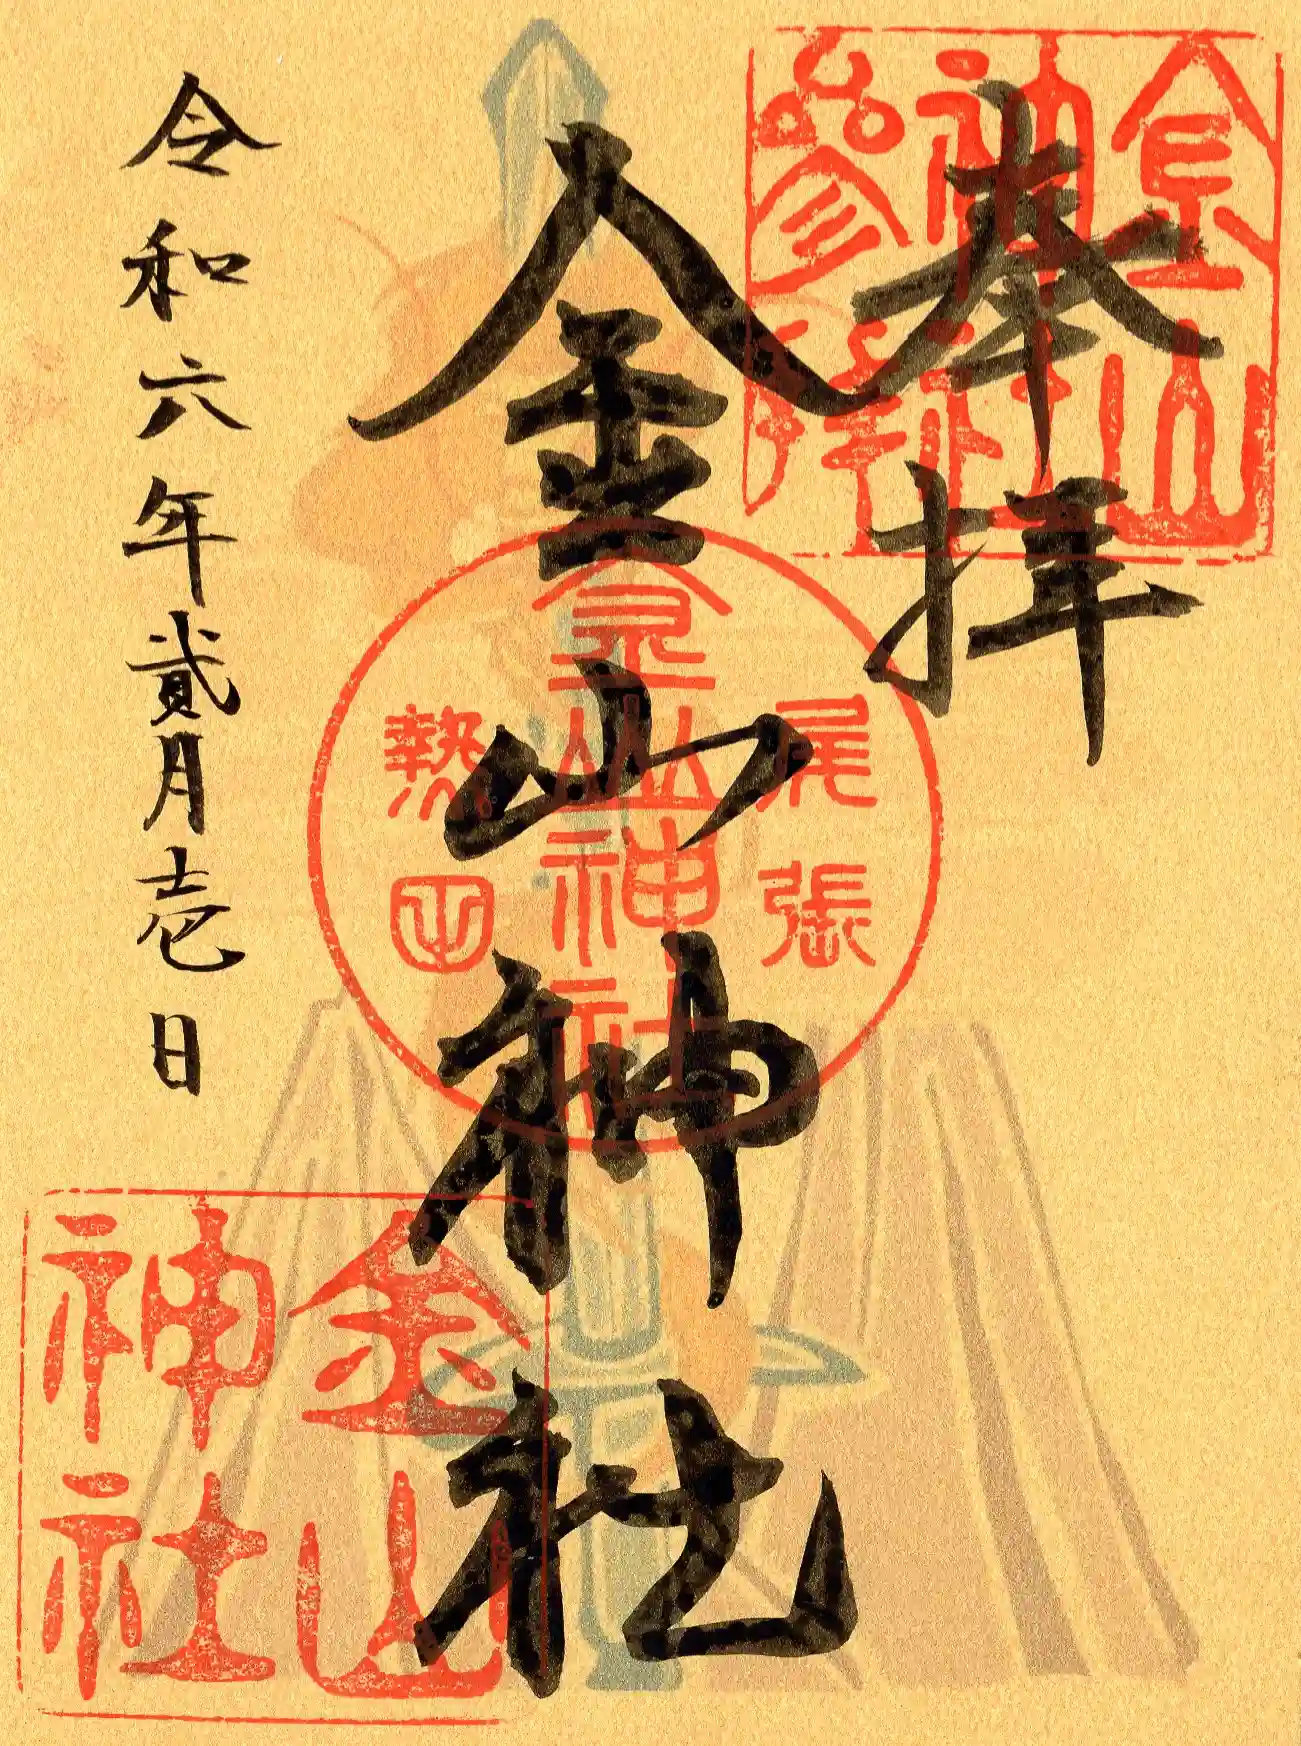 奉拝
金山
神社
參拝
金山神社
尾張
金山神社
熱田
令和六年貳月壱日
金山
神社